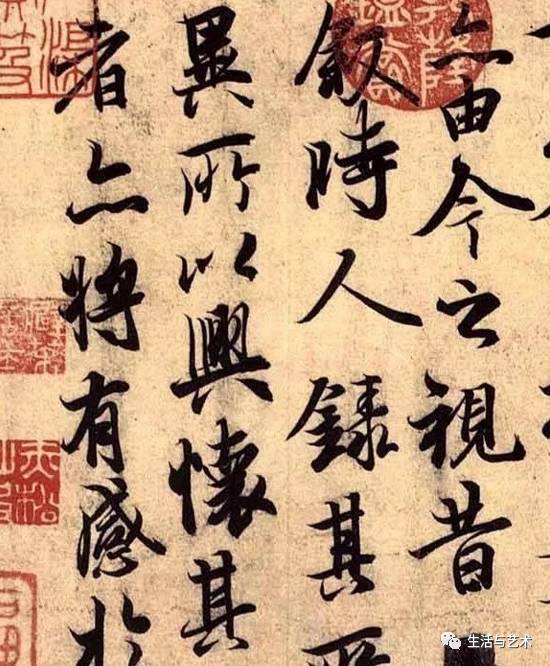 亦由今之視昔
叙時人録其所
異所以興懷其
者亦將有感於
生活与艺术